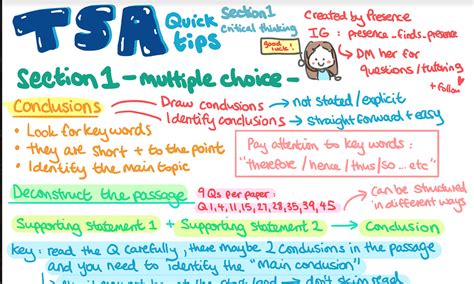 TSA Quick tips
Section 1
Critical thinking
good luck!
Created by Presence
IG : presence_finds_presence
→ DM her for questions/tutoring
+ Follow
Section 1 - multiple choice -
Conclusions
Draw conclusions → not stated/explicit
Identify conclusions → straightforward + easy
• Look for key words
• they are short + to the point
• Identify the main topic
Pay attention to key words :
"therefore / hence / thus / so ... etc"
Deconstruct the passage
9 Qs per paper :
Q 1, 4, 11, 15, 27, 28, 35, 39, 45
→ Can be structured in different ways
Supporting Statement 1 + Supporting Statement 2 → Conclusion
Key : read the Q carefully, there maybe 2 Conclusions in the passage
and you need to identify the "main conclusion"
don't skim read